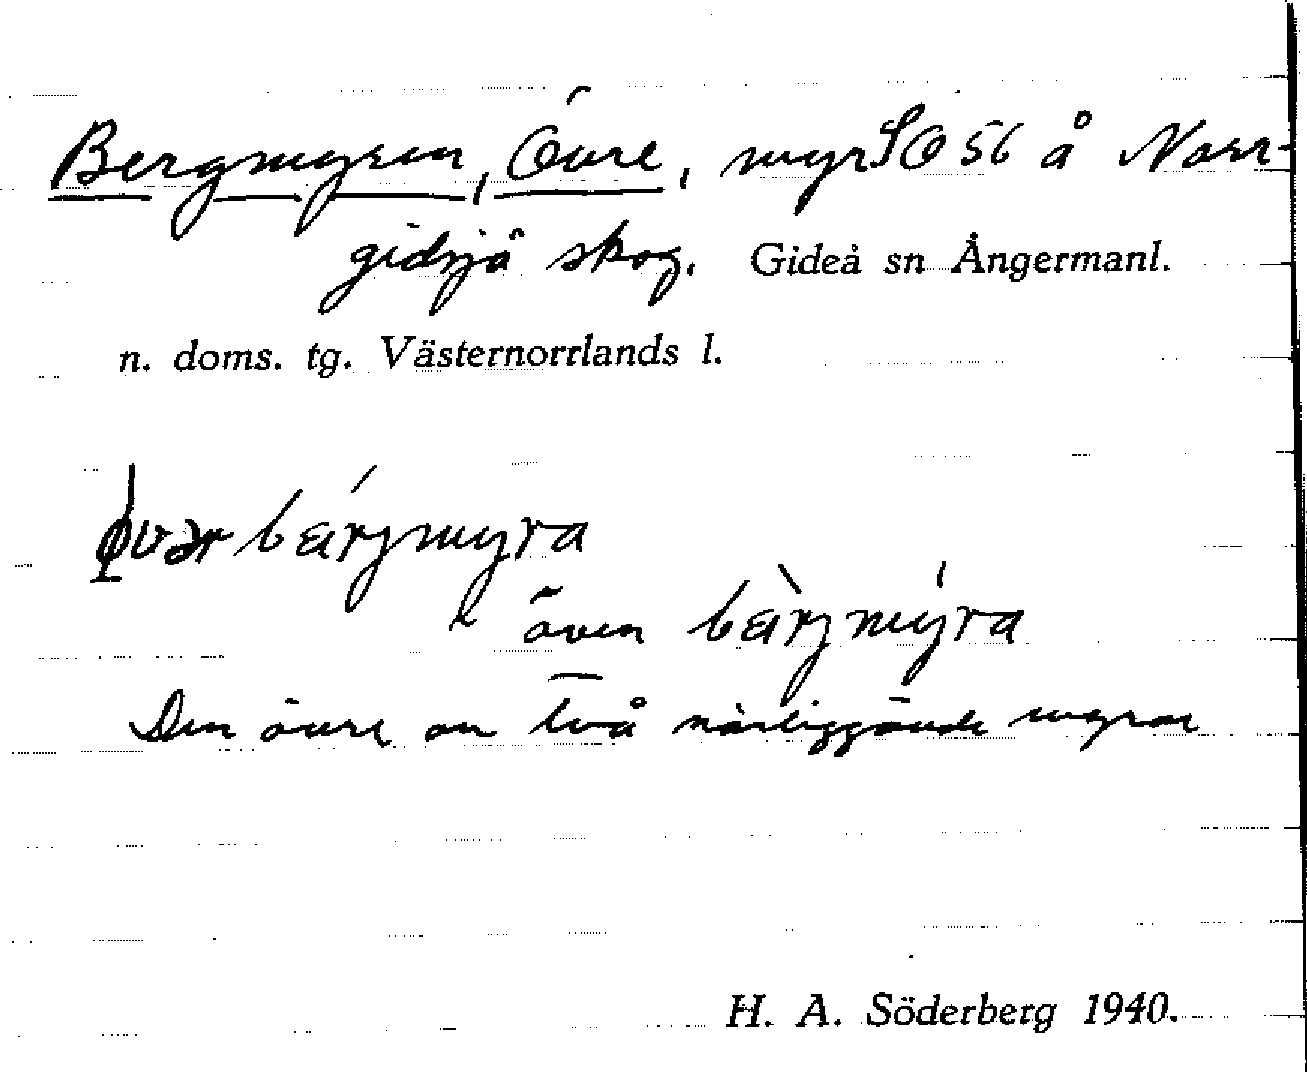 Bergmyren, Övre, myr SO 56 å Norr-
gidsjö skog. Gideå sn Ångermanl.
n. doms. tg. Västernorrlands l.
bærjmyra
även bærjmyra
Den övre av två närliggande myrar
H. A. Söderberg 1940.